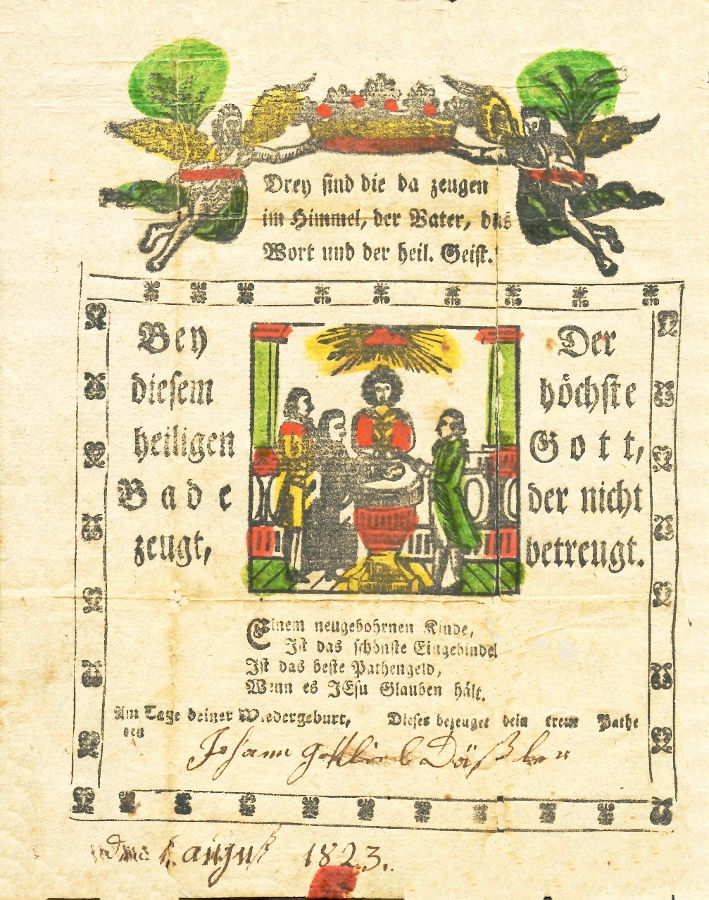 Drey sind die da zeugen
im Himmel, der Vater, das
Wort und der heil. Geist.
Bey
diesem
heiligen
Bade
zeugt,
Der
höchste
Gott,
der nicht
betreugt.
Einem neugebohrnen Kinde,
Ist das schönste Eingebinde!
Ist das beste Pathengeld,
Wenn es JEsu Glauben hält.
Am Tage deiner Wiedergeburt,
den
Dieses bezeuget dein treuer Pathe
Johann Gottlieb
August 1823.